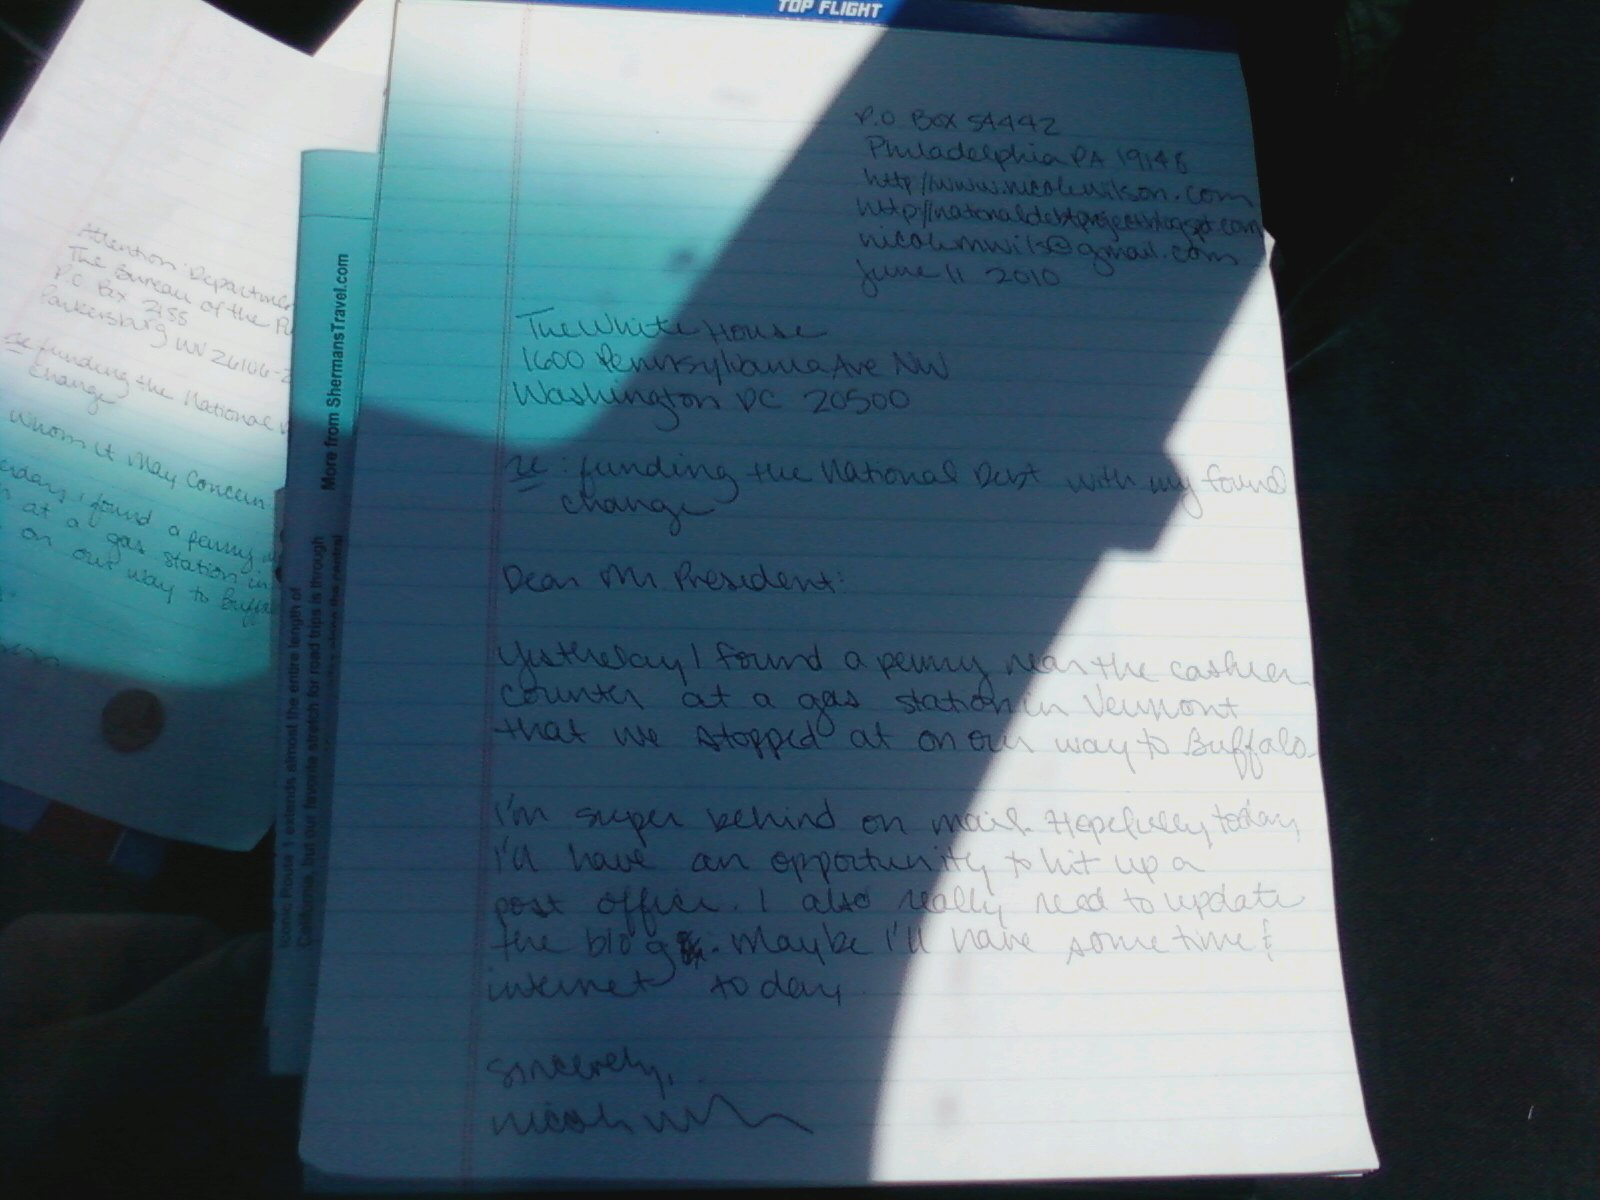 TOP FLIGHT
P.O Box 54442
Philadelphia PA 19148
http://www.nicolewilson.com
http://nationaldebtproject.blogspot.com
nicolemwils@gmail.com
June 11 2010
The White House
1600 Pennsylvania Ave NW
Washington DC 20500
re: funding the National Debt with my found
change
Dear Mr President:
Yesterday I found a penny near the cashier
counter at a gas station in Vermont
that we stopped at on our way to Buffalo
I'm super behind on mail. Hopefully today,
I'll have an opportunity to hit up a
post office. I also really need to update
the blog. Maybe I'll have some time &
internet today
Sincerely,
Nicole
Attention Departmen
The Bureau of the Pu
P.O Box 2188
Parkersburg WV 26106-2
re funding the National
change
Whom it May Concern:
I found a penny
at a gas station in
on our way to Buffa
More from ShermansTravel.com
Iconic Route 1 extends almost the entire length of
California, but our favorite stretch for road trips is through